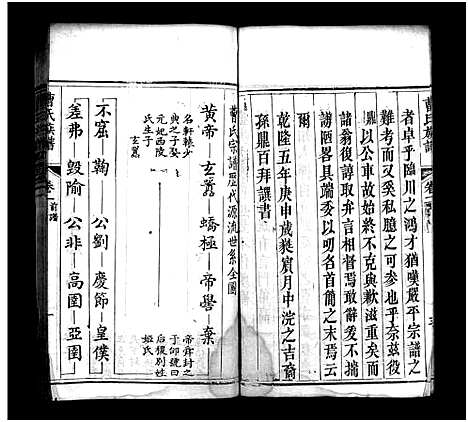 曹氏族譜
卷
者卓乎臨川之鴻才猶嘆嚴平宗譜之
難考而又奚私臆之可參也乎奈茲譜
鼎以公車故始終不克與歉滋重矣而
諸翁復諄取弁言相督焉敢辭爰不揣
謭陋畧具端委以明名首簡之末焉云
爾
乾隆五年庚申歲蕤賓月中浣之吉裔
孫鼎百拜譔書
曹氏宗譜歷代源流世系全圖
黃帝 玄囂 蟜極 帝嚳 棄
名軒轅少
典之子娶
元妃西陵
氏生子
玄囂
帝舜封之
于邰號曰
后稷别姓
姬氏
不窋 鞠 公劉 慶節 皇僕
差弗 毀隃 公非 高圉 亞圉
曹氏族譜
卷一 前譜